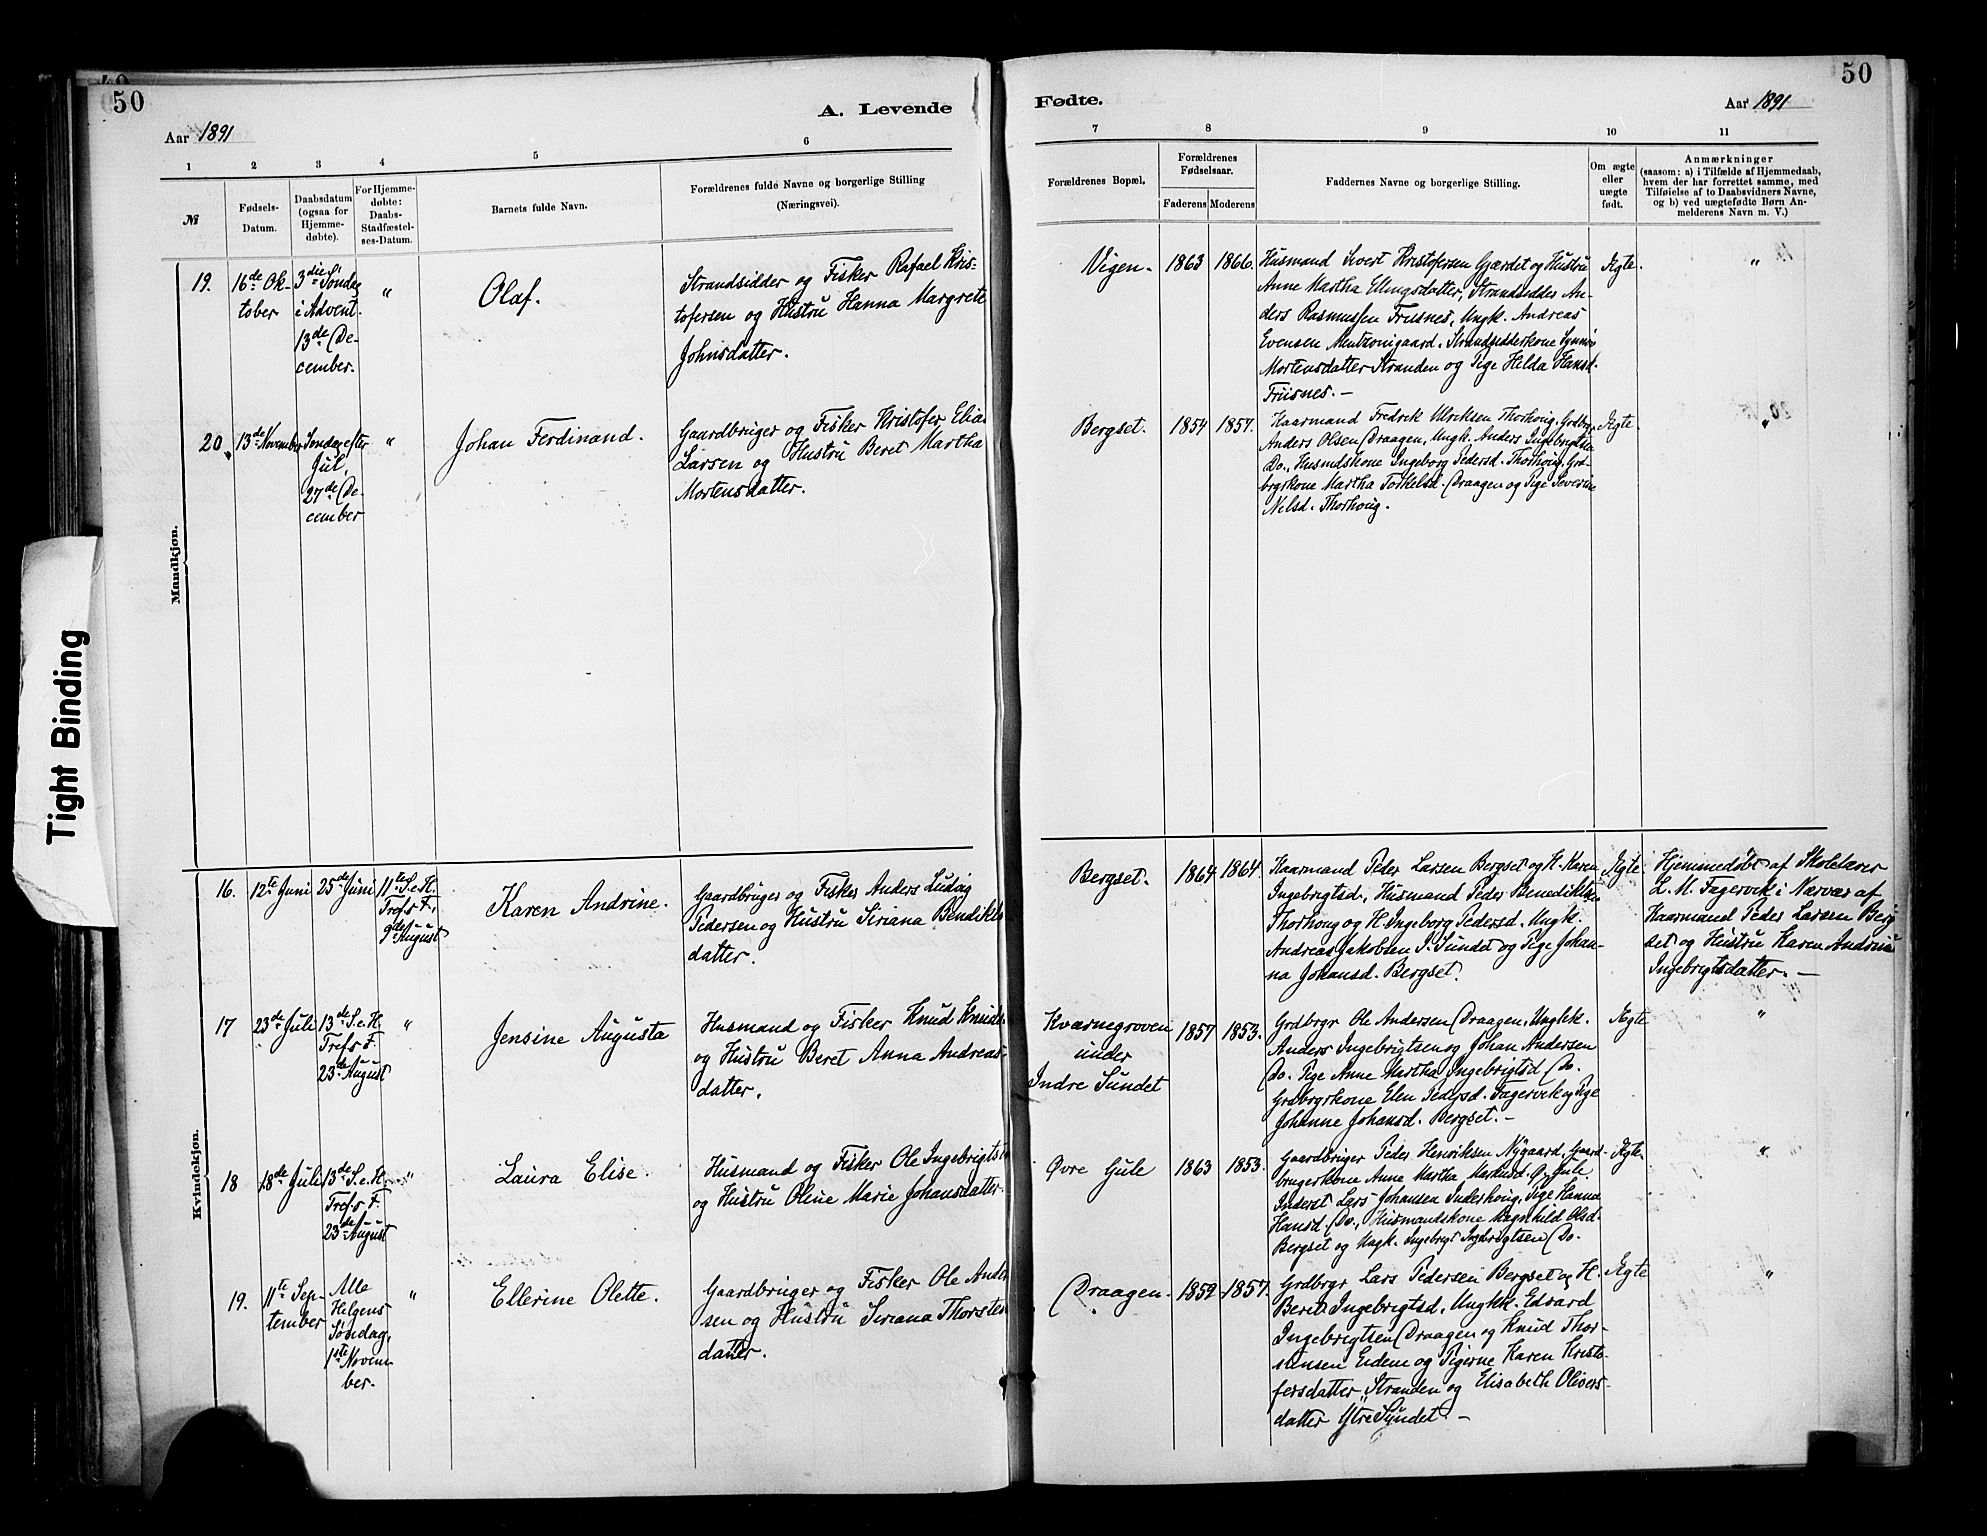 50
A. Levende
Aar 1891
1 2 3 4 5 6
№
Fødsels-
Datum.
Daabsdatum
(ogsaa for
Hjemme-
døbte).
For Hjemme-
døbte:
Daabs-
Stadfæstel-
ses-Datum.
Barnets fulde Navn.
Forældrenes fulde Navne og borgerlige Stilling
(Næringsvei).
Mandkjøn.
19.
16de Ok-
tober
3die Søndag
i Advent.
13de De-
cember.
"
Olaf.
Strandsidder og Fisker Rafael Kris-
tofersen og Hustru Hanna Margrete
Johnsdatter.
20.
13de November
Søndag efter
Jul,
27de De-
cember
"
Johan Ferdinand.
Gaardbruger og Fisker Kristofer Elia
Larsen og Hustru Beret Martha
Mortensdatter.
Kvindekjøn.
16.
12te Juni
25de Juni
11te S. e. H.
Tref's F.,
9de August
Karen Andrine.
Gaardbruger og Fisker Anders Ludvig
Pedersen og Hustru Siriana Bendikts
datter.
17
23de Juli
13de S. e. H.
Tref's F.
23de August
"
Jensine Augusta
Husmand og Fisker Knud Knuds.
og Hustru Beret Anna Andreas-
datter.
18
18de Juli
13de S. e. H.
Tref's F.
23de August
"
Laura Elise.
Husmand og Fisker Ole Ingebrigtsen
og Hustru Oline Marie Johansdatter.
19.
11te Sep-
tember
Alle
Helgens
Søndag,
1ste Novem-
ber.
"
Ellerine Olette.
Gaardbruger og Fisker Ole Ander
sen og Hustru Siriana Thorsten
datter.
Tight Binding
50
Fødte.
Aar 1891
7 8 9 10 11
Forældrenes Bopæl.
Forældrenes
Fødselsaar.
Faderens Moderens
Faddernes Navne og borgerlige Stilling.
Om ægte
eller
uægte
født.
Anmærkninger
(saasom: a) i Tilfælde af Hjemmedaab,
hvem der har forrettet samme, med
Tilføielse af to Daabsvidners Navne,
og b) ved uægtefødte Børn An-
melderens Navn m. V.)
Vigen.
1863
1866.
Husmand Sivert Kristofersen Gjærdet og Hustru
Anne Martha Ellingsdatter, Strandsidder An-
ders Rasmussen Frusnes, Ungk. Andreas
Evensen Strandsidderkone Synnøv
Mortensdatter Stranden og Pige Helda Hansd.
Frusnes. —
Ægte.
"
Bergset.
1854
1857.
Kaarmand Fredrik Ulriksen Thorhoug, Grdbrgr
Anders Olsen Draagen, Ungk. Anders Ingebrigtsen
Do., Husmdskone Ingeborg Pedersd. Thorhoug, Grd-
brgrkone Martha Torkelsd. Draagen og Pige Severine
Nelsd. Thorhoug.
Ægte.
"
Bergset.
1864
1864.
Kaarmand Peder Larsen Bergset og H. Karen
Ingebrigtsd., Husmand Peder Benediktsen
Thorhoug og H. Ingeborg Pedersd. Ungk.
Andreas Jakobsen I. Sundet og Pige Johan-
na Johansd. Bergset.
Ægte.
Hjemmedøbt af Skolelærer
L. M. Fagervik i Nærvær af
Kaarmand Peder Larsen Berg
set og Hustru Karen Andrine
Ingebrigtsdatter. —
Kværnegroven
under
Indre Sundet
1857
1853.
Grdbrgr Ole Andersen Draagen, Ungkk.
Anders Ingebrigtsen og Johan Andersen
Do. Pige Anne Martha Ingebrigtsd Do.
Grdbrgrkone Elen Pedersd. Fagervik og Pige
Johanne Johansd. Bergset. —
Ægte
"
Øvre Gule
1863
1853.
Gaardbruger Peder Henriksen Nygaard, Gaard-
brugerkone Anne Martha Ø. Gule
Inderst Lars Johansen Inderhoug, Pige Hanna
Hansd. Do., Husmandskone Ragnhild Olsd.
Bergset og Ungk. Ingebrigt Ingebrigtsen Do.
Ægte.
"
Draagen.
1852
1857.
Grdbrgr Lars Pedersen Bergset og H.
Beret Ingebrigtsd., Ungkk. Edvard
Ingebrigtsen Draagen og Knud Thor-
stensen Eidem og Pigerne Karen Kristo-
fersdatter Stranden og Elisabeth Olivers-
datter Ytre Sundet. —
Ægte
"